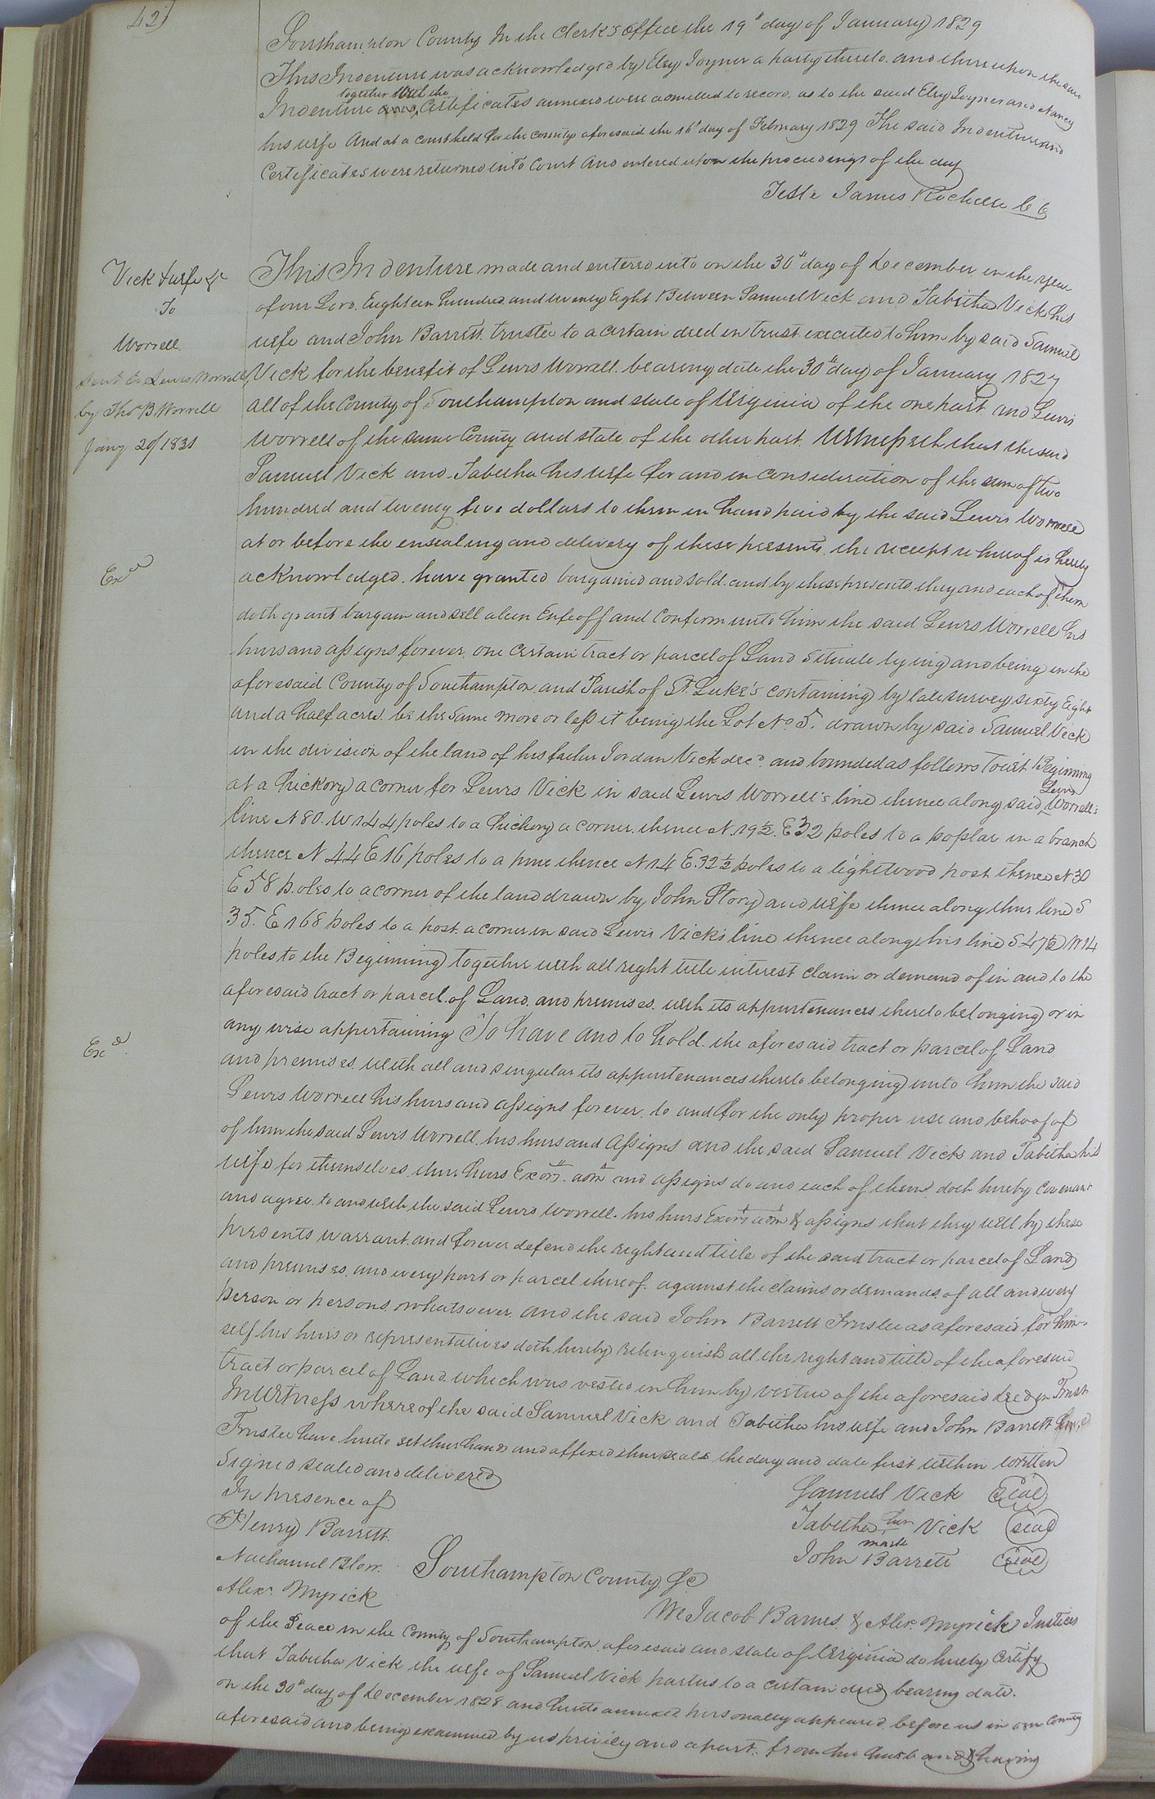 42
Southampton County In the Clerk's office the 19th day of January 1829
This Indenture was acknowledged by Eley Joyner a party thereto and thereupon the said
together with the
Indenture and Certificates annexed were admitted to record as to the said Eley Joyner and Nancy
his wife And at a court held for the county aforesaid the 16th day of February 1829 The said Indenture and
Certificates were returned into Court And entered upon the proceedings of the day
Teste James Rochelle C C
Vick & wife &c
To
Worrell
Sent to Lewis Worrell
by Thos B Worrell
Jany 20/1831
Exd
Exd
This Indenture made and entered into on the 30th day of December in the year
of our Lord Eighteen hundred and twenty Eight Between Samuel Vick and Tabitha Vick his
wife and John Barrett trustee to a certain deed in trust executed to him by said Samuel
Vick for the benefit of Lewis Worrell bearing date the 30th day of January 1827
all of the County of Southampton and state of Virginia of the one part and Lewis
Worrell of the same County and state of the other part Witnesseth that the said
Samuel Vick and Tabitha his wife for and in consideration of the sum of two
hundred and twenty five dollars to them in hand paid by the said Lewis Worrell
at or before the ensealing and delivery of these presents the receipt whereof is hereby
acknowledged have granted bargained and sold and by these presents they and each of them
doth grant bargain and sell alien Enfeoff and Confirm unto him the said Lewis Worrell his
heirs and assigns forever one certain tract or parcel of Land Situate lying and being in the
aforesaid County of Southampton and Parish of St Luke's containing by late survey sixty Eight
and a half acres be the same more or less it being the Lot No 5. drawn by said Samuel Vick
in the division of the land of his father Jordan Vick decd and bounded as follows Towit Beginning
at a hickory a corner for Lewis Vick in said Lewis Worrell's line thence along said Lewis Worrell's
line N 80. W 144 poles to a hickory a corner thence N. 19½. E 32 poles to a poplar in a branch
thence N 44 E 16 poles to a pine thence N 14 E. 32½ poles to a lightwood post thence N 30
E 58 poles to a corner of the land drawn by John Story and wife thence along their line S
35. E 168 poles to a post a corner in said Lewis Vick's line thence along his line S 47½ W 14
poles to the Beginning together with all right title interest claim or demand of in and to the
aforesaid tract or parcel of Land and premises with its appurtenances thereto belonging or in
any wise appertaining To have and to hold the aforesaid tract or parcel of Land
and premises with all and singular its appurtenances thereto belonging unto him the said
Lewis Worrell his heirs and assigns forever to and for the only proper use and behoof of
of him the said Lewis Worrell his heirs and Assigns and the said Samuel Vick and Tabitha his
wife for themselves their heirs Exors. adms and assigns do and each of them doth hereby Covenant
and agree to and with the said Lewis Worrell his heirs Exors adms & assigns that they will by these
presents warrant and forever defend the right and title of the said tract or parcel of Land
and premises and every part or parcel thereof against the claims or demands of all and every
person or persons whatsoever and the said John Barrett Trustee as aforesaid for him-
self his heirs or representatives doth hereby relinquish all the right and title of the aforesaid
tract or parcel of Land which was vested in him by virtue of the aforesaid deed in Trust
In Witness whereof the said Samuel Vick and Tabitha his wife and John Barrett
Trustee have hereto set their hands and affixed their seals the day and date first within written
Signed sealed and delivered
In presence of
Samuel Vick (seal)
Henry Barrett
Tabitha her Vick (seal)
mark
John Barrett (seal)
Nathaniel Blow
Southampton County Sc
Alexr Myrick
We Jacob Barnes & Alexr Myrick Justices
of the Peace in the County of Southampton aforesaid and state of Virginia do hereby Certify
that Tabitha Vick the wife of Samuel Vick parties to a certain deed bearing date
on the 30th day of December 1828 and hereto annexed personally appeared before us in our County
aforesaid and being examined by us privily and apart from her husband & having